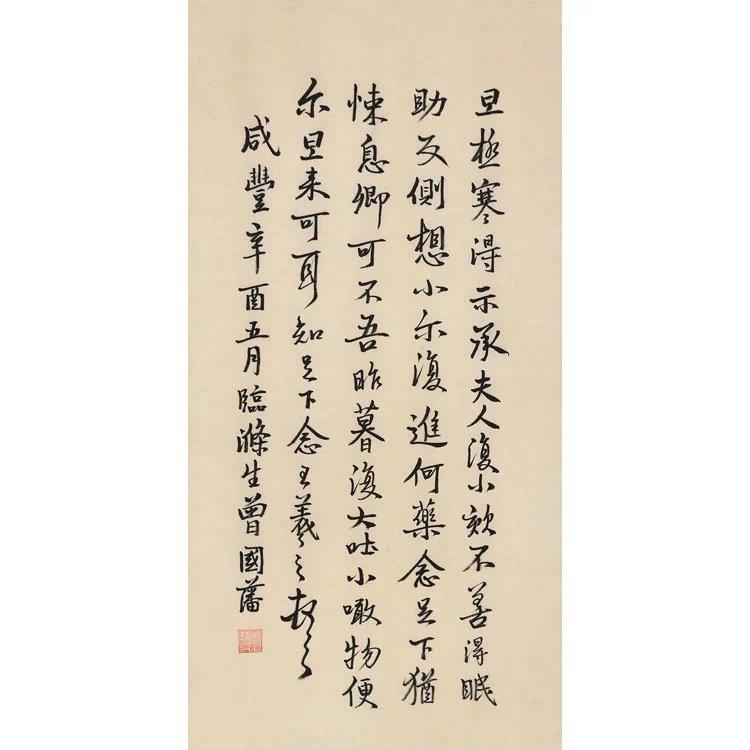 旦極寒得示承夫人復小欬不善得眠
助反側想小尓復進何藥念足下猶
悚息卿可不吾昨暮復大吐小噉物便
尓旦来可耳知足下念王羲之頓首
咸豐辛酉五月臨滌生曾國藩